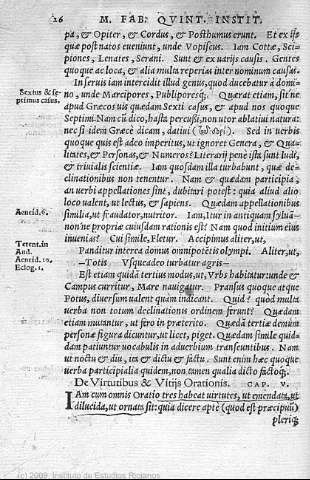 26 M. FAB: QVINT. INSTIT.
pa, & Opiter, & Cordus, & Posthumus erunt. Et ex ijs
quæ post natos eueniunt, unde Vopiscus. Iam Cottæ, Sci-
piones, Lenates, Serani. Sunt & ex uarijs causis. Gentes
quoque ac loca, & alia multa reperias inter nominum causas.
In seruis iam intercidit illud genus, quod ducebatur à domi-
no, unde Marcipores, Publiporesq́. Quærat etiam, sit ne
Sextus & se-
ptimus casus.
apud Græcos uis quædam Sexti casus, & apud nos quoque
Septimi. Nam cũ dico, hasta percussi, non utor ablatiui natura:
nec si idem Græcè dicam, datiui
Sed in uerbis
quoque quis est adeo imperitus, ut ignoret Genera, & Qua-
litates, & Personas, & Numeros? Literarij penè ista sunt ludi,
& triuialis scientiæ. Iam quosdam illa turbabunt, quæ de-
clinationibus non tenentur. Nam & quædam participia
an uerbi appellationes sint, dubitari potest: quia aliud alio
loco ualent, ut lectus, & sapiens. Quædam appellationibus
similia, ut fraudator, nutritor. Iam, Itur in antiquam syluã-
Aeneid. 6.
non'ne propriæ cuiusdam rationis est? Nam quod initium eius
inuenias? Cui simile, Fletur. Accipimus aliter, ut,
Terent. in
And.
Aeneid. 10.
Eclog. 1.
Panditur interea domus omnipotẽtis olympi. Aliter, ut,
—Totis Vsqueadeo turbatur agris—
Est etiam quidã tertius modus, ut, Vrbs habitatur: unde &
Campus curritur, Mare nauigatur. Pransus quoque atque
Potus, diuersum ualent quàm indicant. Quid? quòd multa
uerba non totum declinationis ordinem ferunt? Quædam
etiam mutantur, ut fero in præterito. Quædã tertiæ demum
personæ figura dicuntur, ut licet, piget. Quædam simile quid-
dam patiuntur uocabulis in aduerbium transeuntibus. Nam
ut noctu & diu, ita & dictu & factu. Sunt enim hæc quoque
uerba participialia quidem, non tamen qualia dicto factoq́.
De Virtutibus & Vitijs Orationis. CAP. V.
IAm cum omnis Oratio tres habeat uirtutes, ut emendata, ut
dilucida, ut ornata sit: quia dicere aptè (quod est præcipuũ)
pleriq́;
(c) 2009, Instituto de Estudios Riojanos